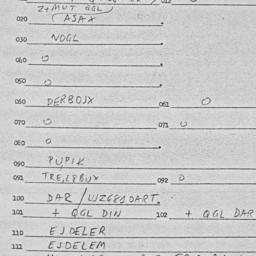 Z+MUT QGL
020 (ASAX
030 NOGL
040 O
050 O
060 DERBOJX 061 O
070 O 071 O
080 O
090 PUPIK
091 TREL8BUX 092 O
100 DAR / WZ681DART
101 + QGL DIN 102 + QGL DAR
110 EJDELER
111 EJDELEM